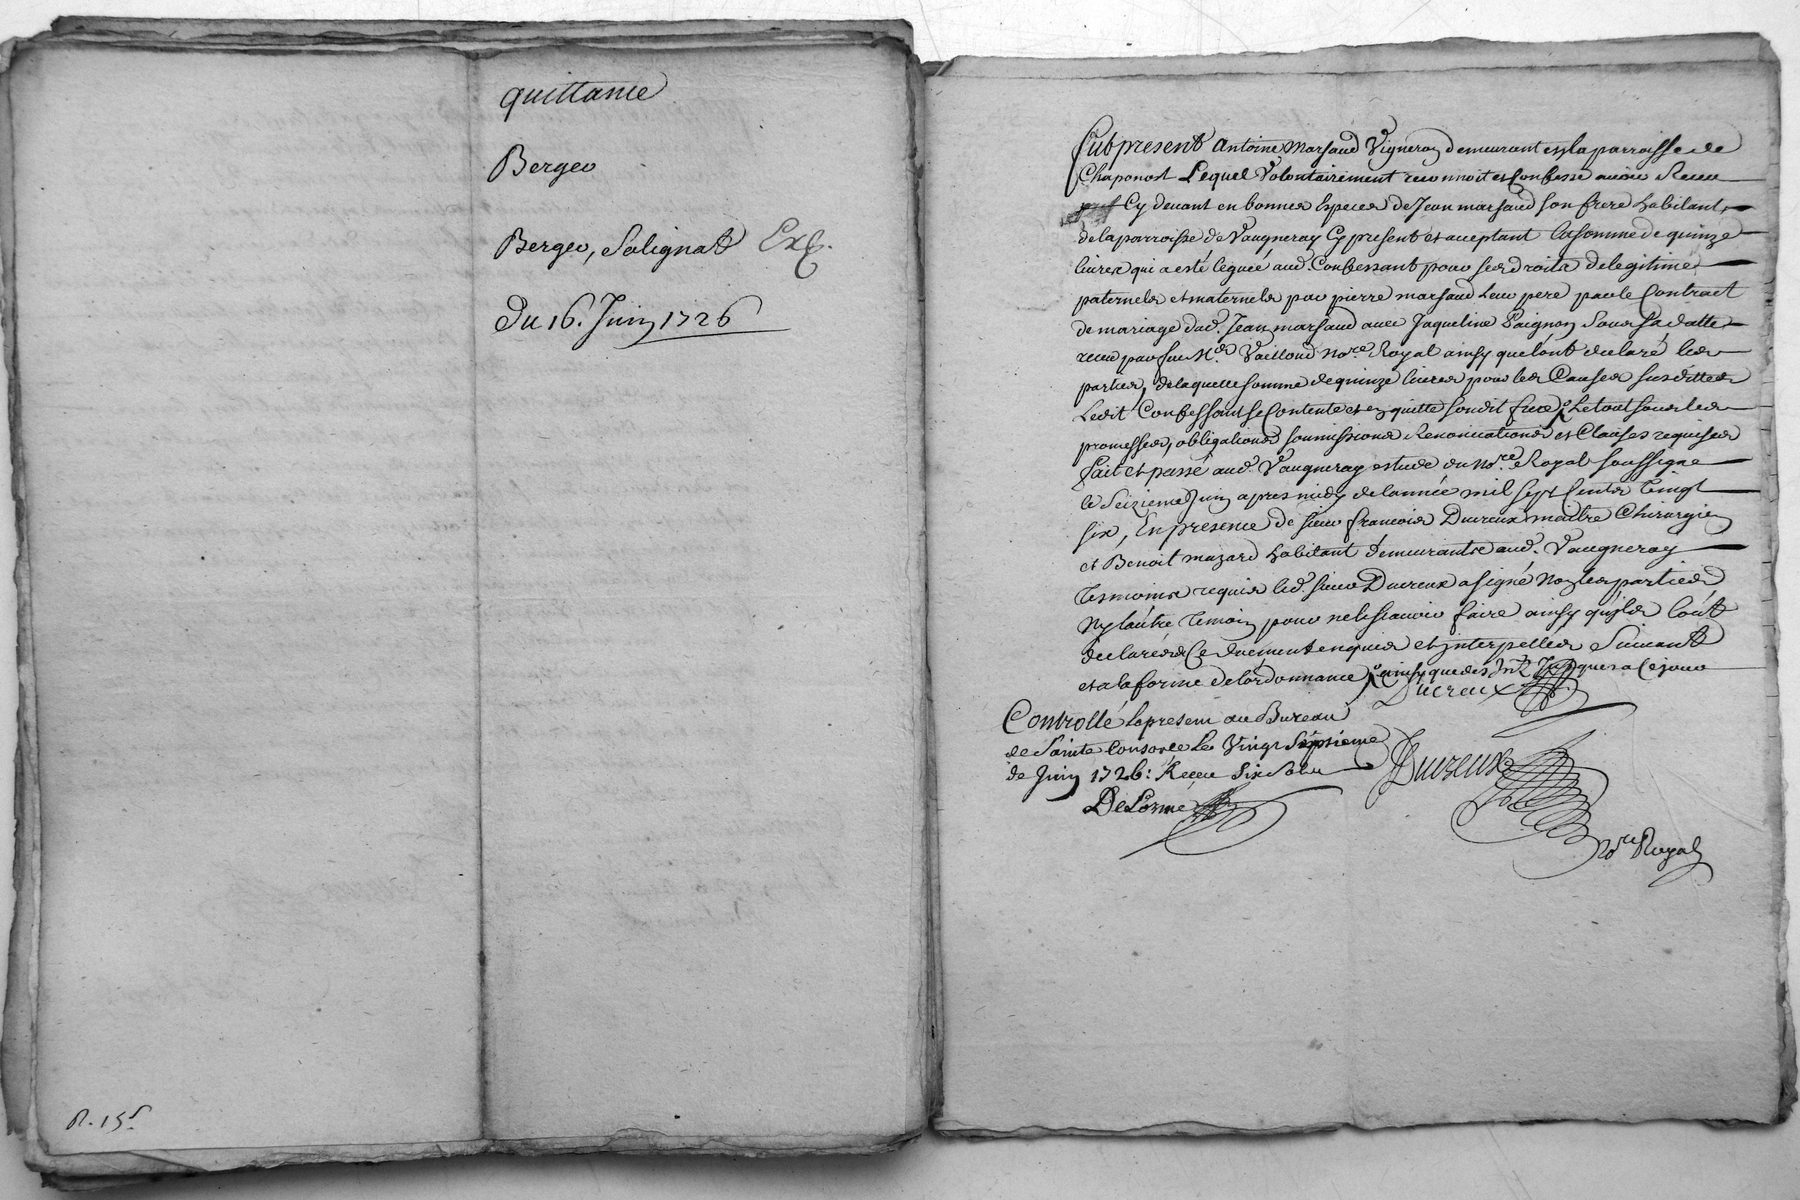 quittance
Berger
Berger, Salignat Exp.
Du 16. Juin 1726
R. 15s
Fut present Antoine Marsaud Vigneron demeurant en la parroisse de
Chaponost Lequel Volontairement reconnoit et Confesse avoir Receu
Cy devant en bonnes Especes de Jean marsaud son frere habitant
de la parroisse de Vaugneray Cy present et aceptant la somme de quinze
livres qui a esté leguée aud. Confessant pour ses droits de legitime
paternels et maternels par pierre marsaud leur pere par le Contract
de mariage dud. Jean marsaud avec Jaqueline Paignon sous sa datte
receu par feu Me Vailloud nore Royal ainsy que lont declaré les
parties, de laquelle somme de quinze livres pour les Causes susdittes
Ledit Confessant se Contente et en quitte sondit frere, Le tout sous les
promesses, obligations soumissions Renonciations et Clauses requises
fait et passé aud. Vaugneray estude du nore Royal soussigne
le Seizieme Juin apres midy de lannée mil sept Cents Vingt
six, En presence de sieur francois Ducreux maitre Chirurgien
et Benoit mazard habitant demeurants aud. Vaugneray
Tesmoins requis led. sieur Ducreux a signé Non les parties
Ny lautre Temoin pour ne le scavoir faire ainsy quils lont
declarés de Ce duement enquis et interpelles Suivant
et a la forme de lordonnance, ainsy que des Ints Jusques a Ce jour
Ducreux
Controllé le present au Bureau
de Sainte Consorce Le Vingt Septieme
de Juin 1726: Receu Six Sols
DeLorme
Ducreux
Nore Royal